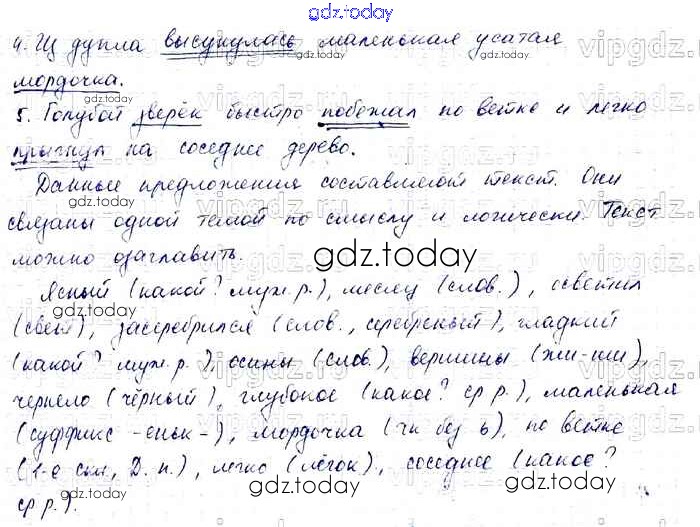 gdz.today
4. Из дупла высунулась маленькая усатая
мордочка.
gdz.today
5. Голубой зверёк быстро побежал по ветке и легко
gdz.today
прыгнул на соседнее дерево.
Данные предложения составляют текст. Они
gdz.today
связаны одной темой по смыслу и логически. Текст
можно озаглавить.
gdz.today
Ясный (какой? муж.р.), месяц (слов.), осветил
(свет), засеребрился (слов., серебряный), гладкий
(какой? муж.р.), осины (слов.), вершины (жи-ши),
чернело (чёрный), глубокое (какое? ср р.), маленькая
(суффикс -еньк-), мордочка (чк без ь), по ветке
(1-е скл., Д. п.), легко (лёгок), соседнее (какое?
ср р.).
gdz.today
gdz.today
gdz.today
vipgdz.ru